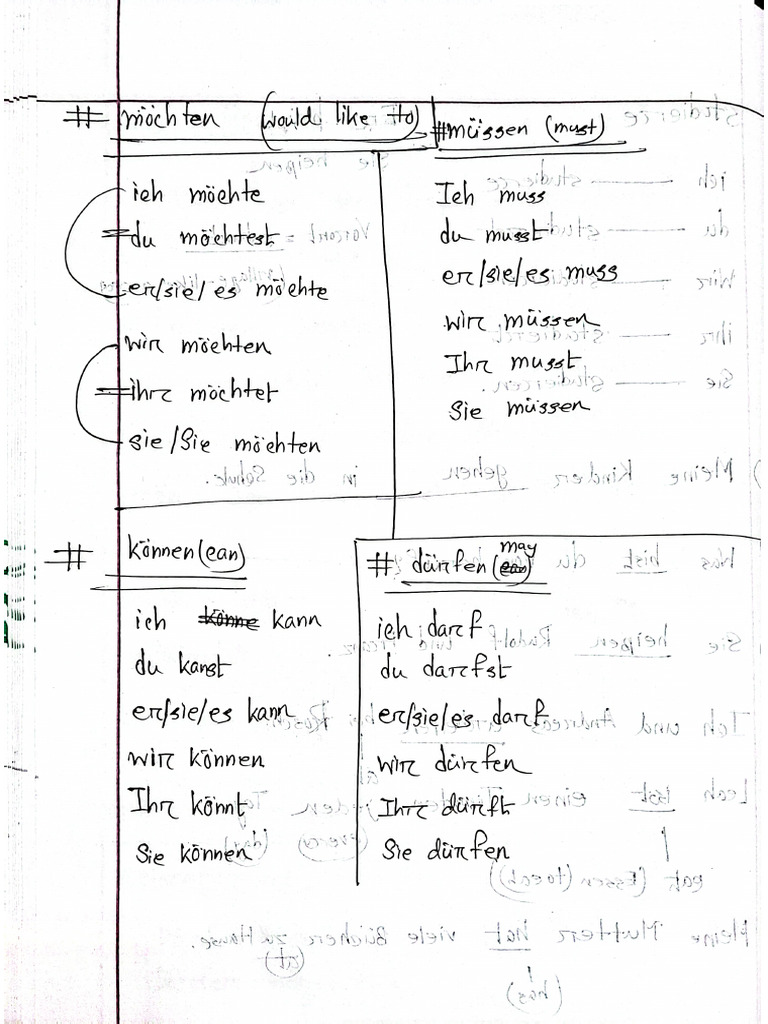 # möchten (would like to)
ich möchte
du möchtest
er/sie/es möchte
wir möchten
ihr möchtet
sie/Sie möchten
#müssen (must)
Ich muss
du musst
er/sie/es muss
wir müssen
Ihr musst
Sie müssen
# können (can)
ich könne kann
du kanst
er/sie/es kann
wir können
Ihr könnt
Sie können
# dürfen (can may)
ich darf
du darfst
er/sie/es darf
wir dürfen
Ihr dürft
Sie dürfen